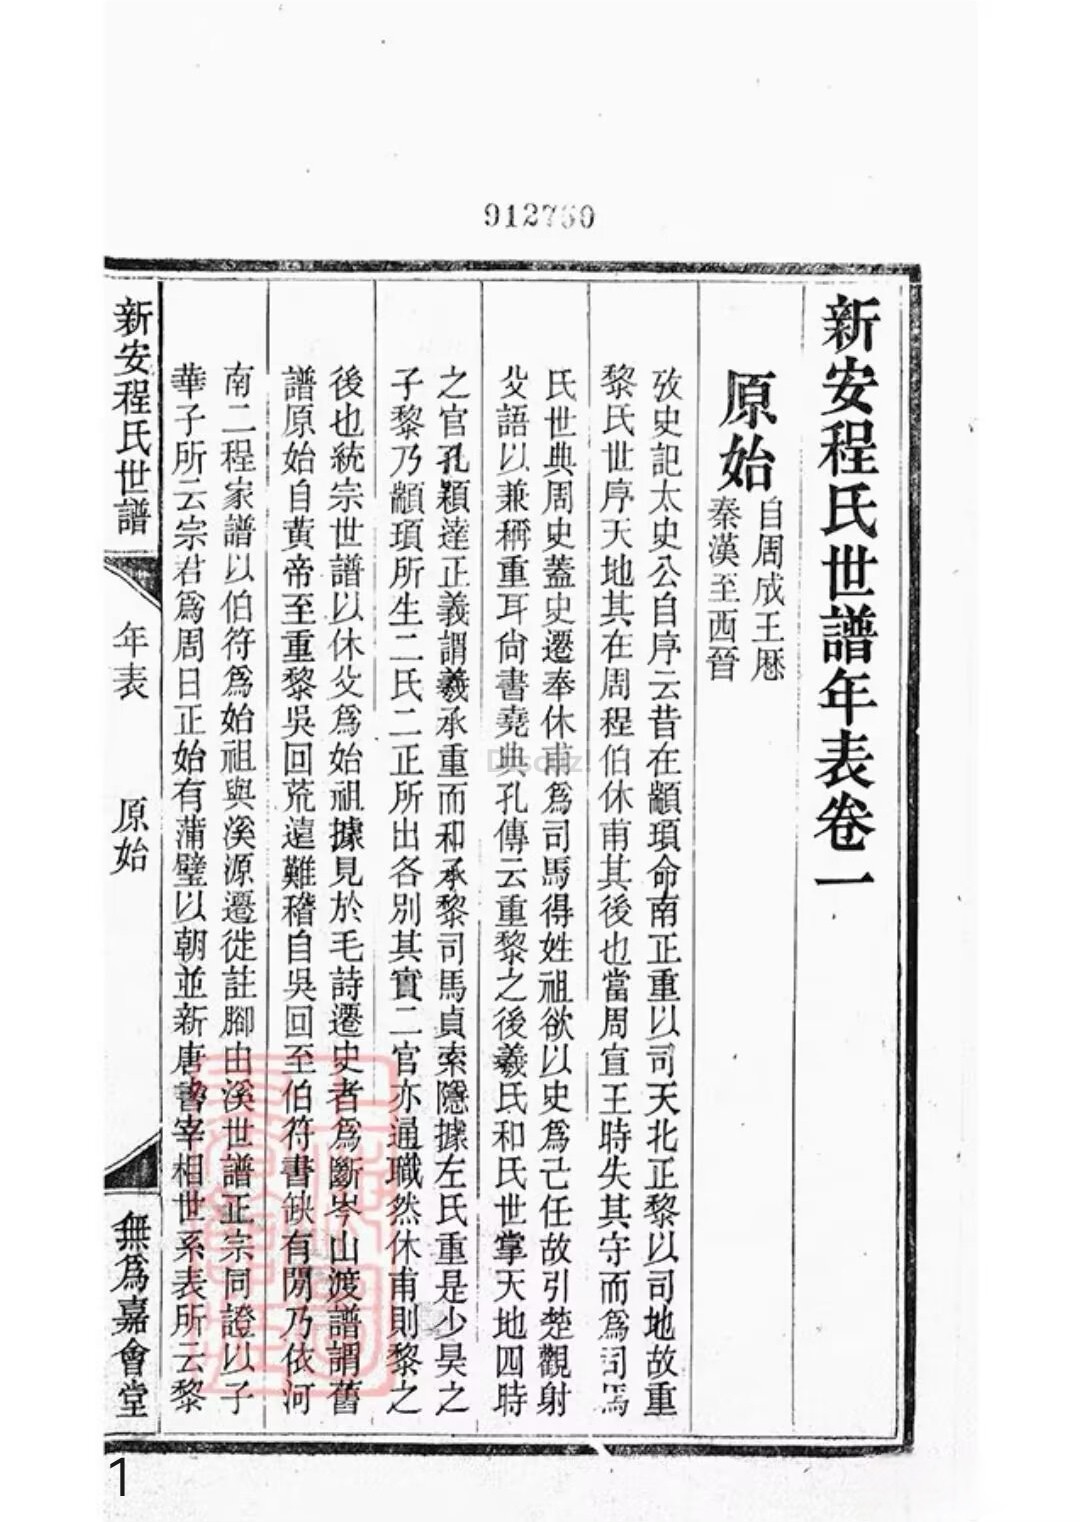 912760
新安程氏世譜年表卷一
原始
自周成王厯
秦漢至西晉
攷史記太史公自序云昔在顓頊命南正重以司天北正黎以司地故重
黎氏世序天地其在周程伯休甫其後也當周宣王時失其守而爲司馬
氏世典周史蓋史遷奉休甫爲司馬得姓祖欲以史爲己任故引楚觀射
父語以兼稱重耳尙書堯典孔傳云重黎之後羲氏和氏世掌天地四時
之官孔穎達正義謂羲承重而和承黎司馬貞索隱據左氏重是少昊之
子黎乃顓頊所生二氏二正所出各別其實二官亦通職然休甫則黎之
後也統宗世譜以休父爲始祖據見於毛詩遷史者爲斷岑山渡譜謂舊
譜原始自黃帝至重黎吳回荒遠難稽自吳回至伯符書缺有閒乃依河
南二程家譜以伯符爲始祖與溪源遷徙註腳由溪世譜正宗同證以子
華子所云宗君爲周日正始有蒲璧以朝並新唐書宰相世系表所云黎
新安程氏世譜
年表
原始
無爲嘉會堂
1